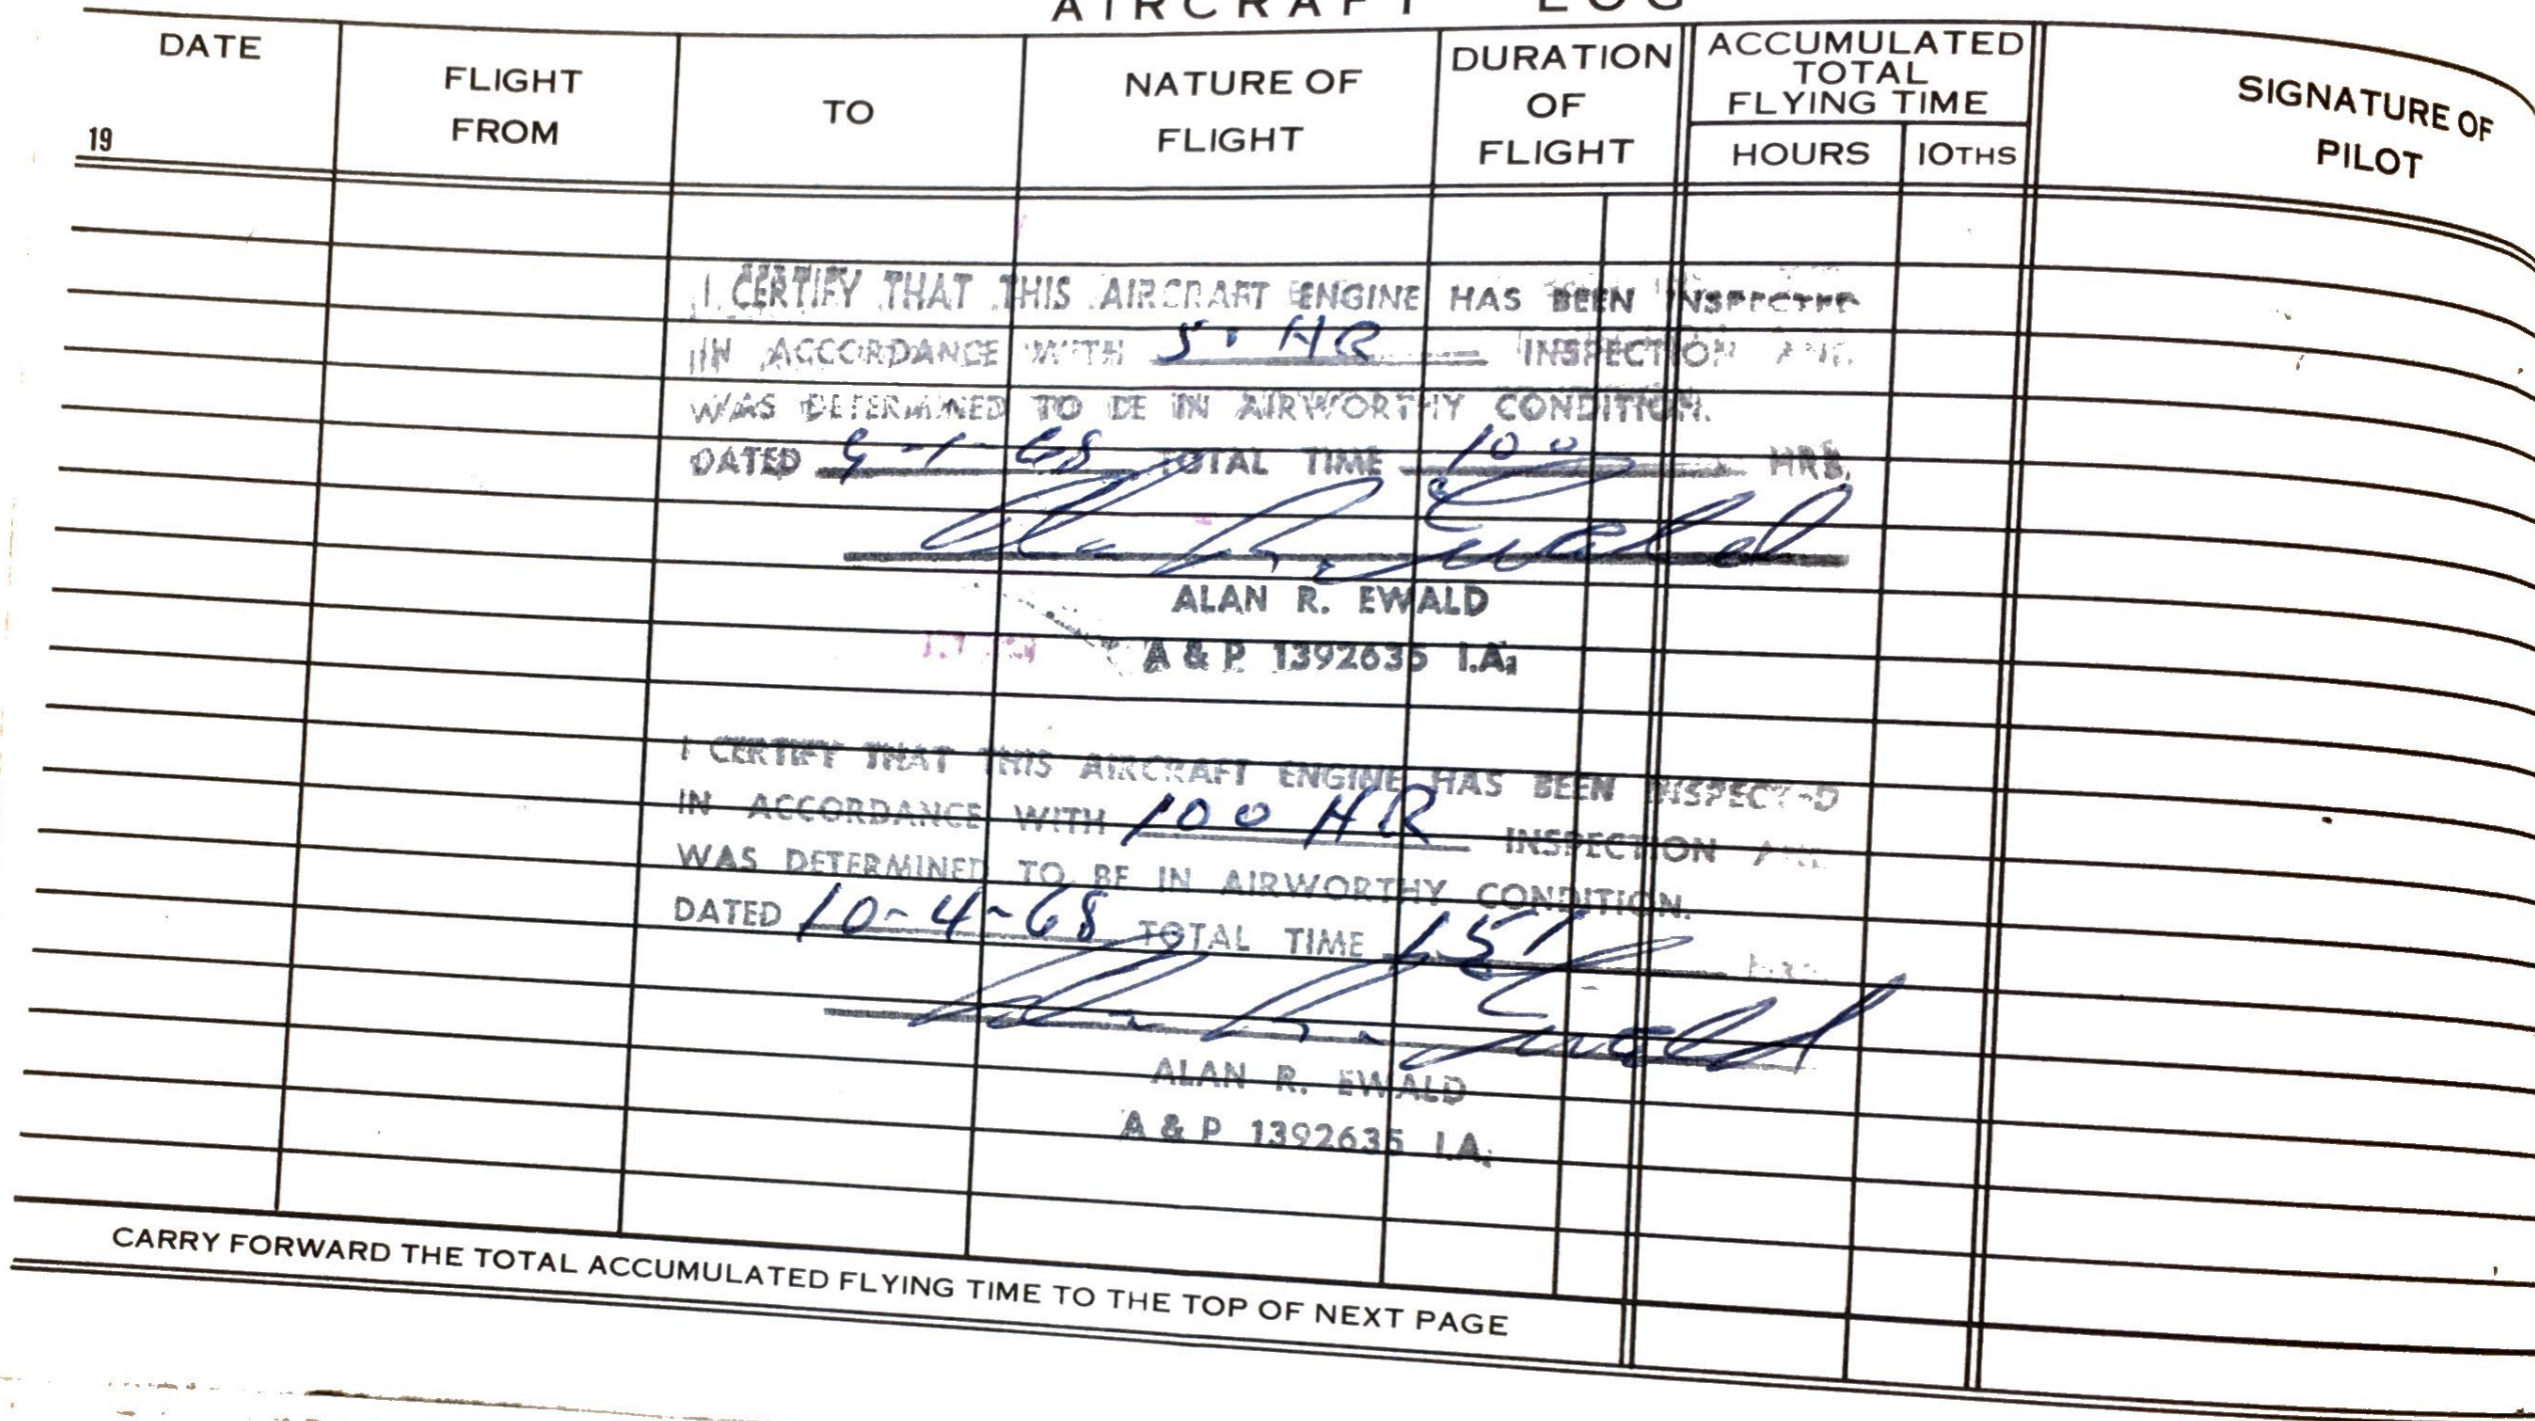 AIRCRAFT LOG
DATE
19
FLIGHT
FROM
TO
NATURE OF
FLIGHT
DURATION
OF
FLIGHT
ACCUMULATED
TOTAL
FLYING TIME
HOURS
10THS
SIGNATURE OF
PILOT
I CERTIFY THAT THIS AIRCRAFT ENGINE HAS BEEN INSPECTED
IN ACCORDANCE WITH HR INSPECTION AND
WAS DETERMINED TO BE IN AIRWORTHY CONDITION.
DATED 9-1-68 TOTAL TIME 100 HRS.
Alan R. Ewald
ALAN R. EWALD
A & P 1392635 I.A.
I CERTIFY THAT THIS AIRCRAFT ENGINE HAS BEEN INSPECTED
IN ACCORDANCE WITH 100 HR INSPECTION AND
WAS DETERMINED TO BE IN AIRWORTHY CONDITION.
DATED 10-4-68 TOTAL TIME 151 HRS.
Alan R. Ewald
ALAN R. EWALD
A & P 1392635 I.A.
CARRY FORWARD THE TOTAL ACCUMULATED FLYING TIME TO THE TOP OF NEXT PAGE